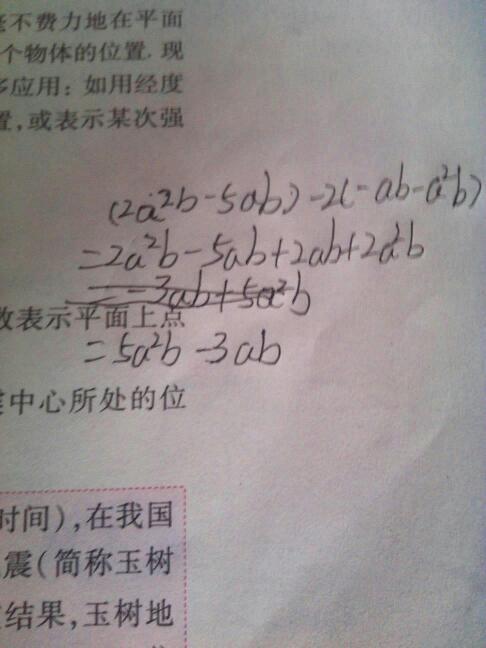 毫不费力地在平面
个物体的位置. 现
多应用：如用经度
置，或表示某次强
(2a²b-5ab)-2(-ab-a²b)
=2a²b-5ab+2ab+2a²b
=-3ab+5a²b
数表示平面上点
=5a²b-3ab
中心所处的位
时间)，在我国
震(简称玉树
结果，玉树地